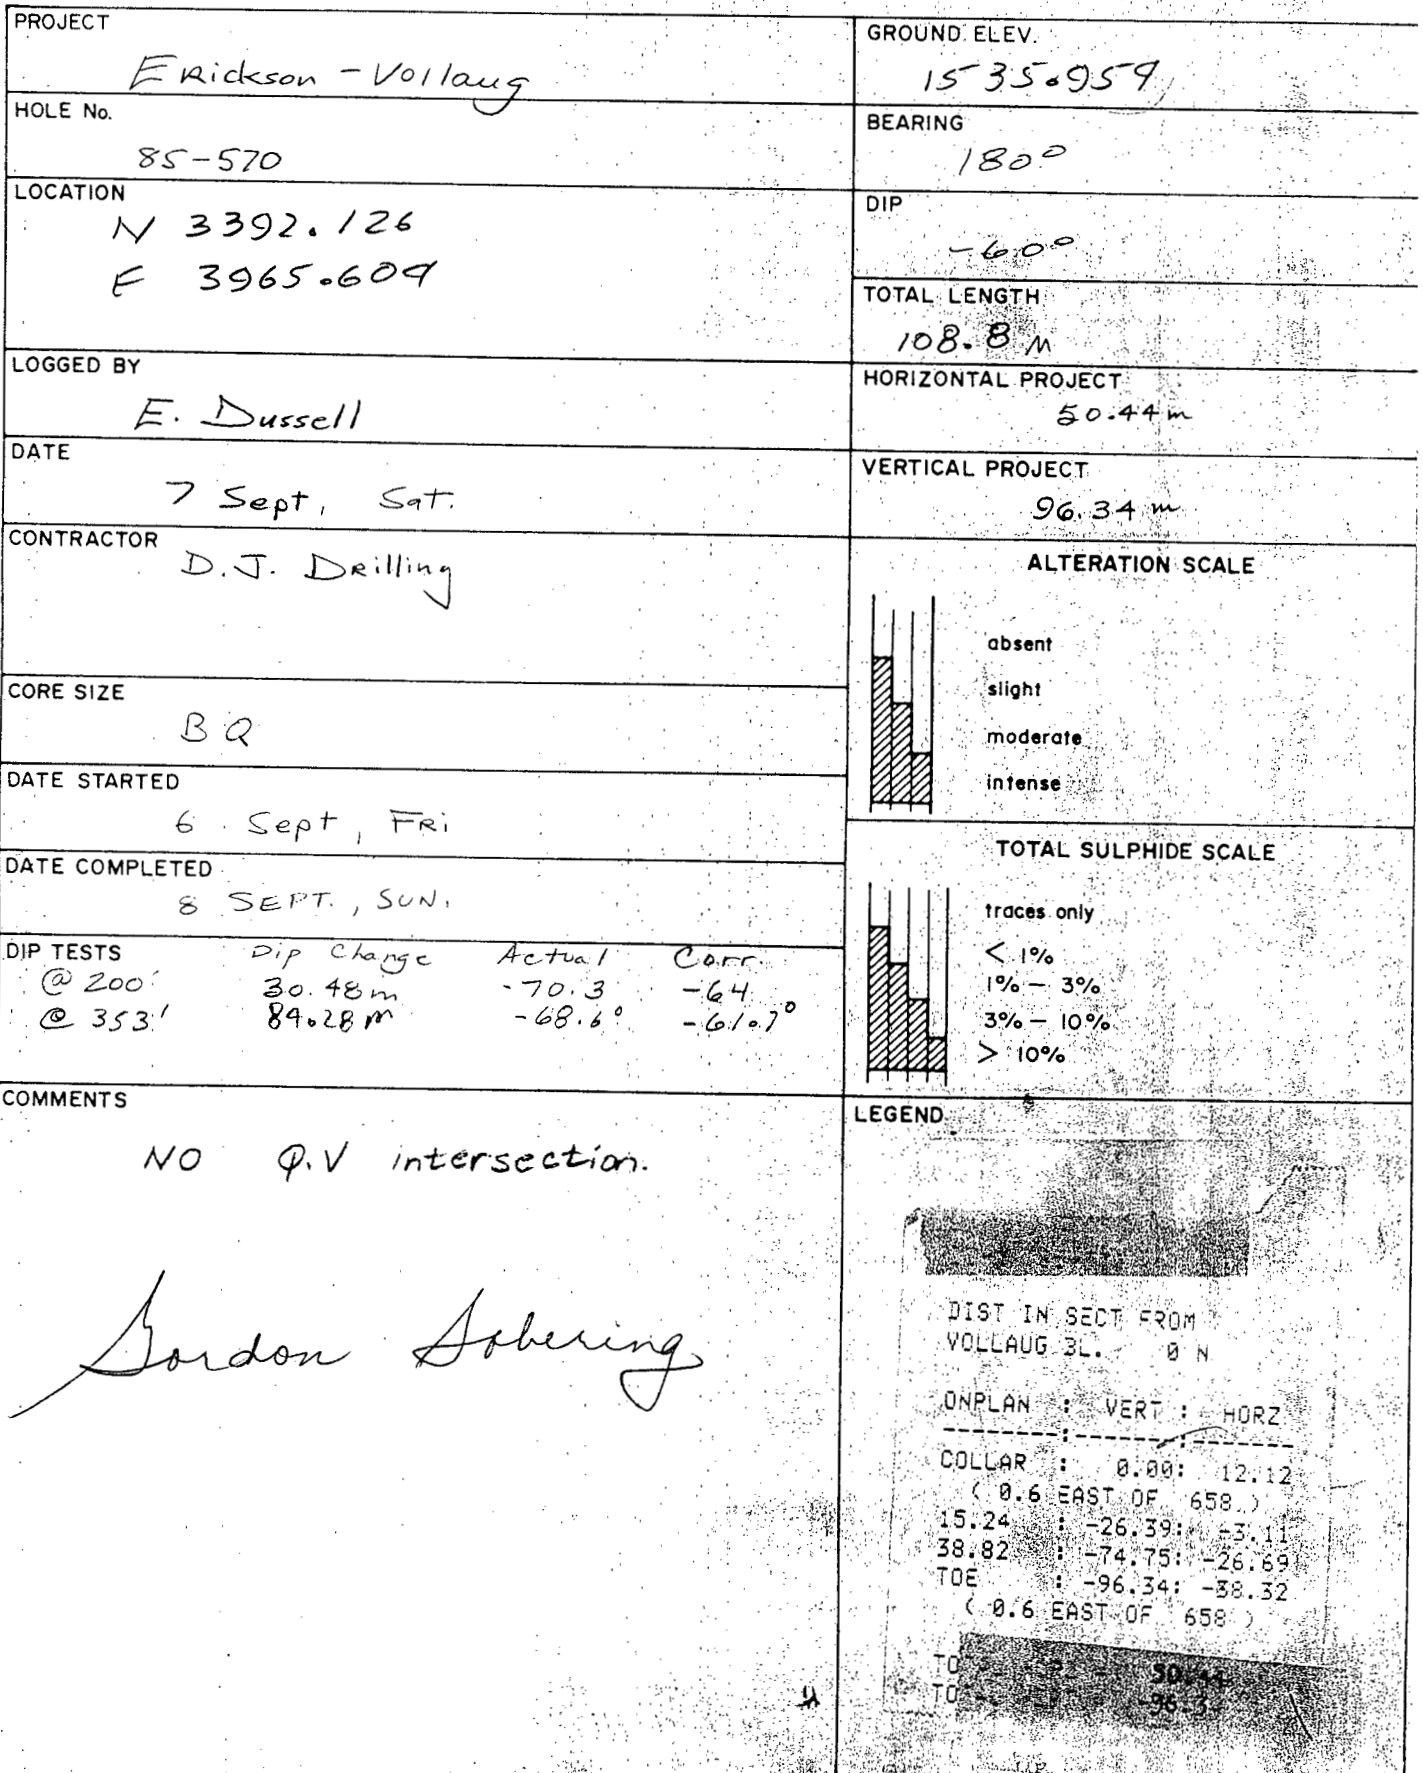 PROJECT
Erickson - Vollaug
HOLE No.
85-570
LOCATION
N 3392.126
E 3965.609
LOGGED BY
E. Dussell
DATE
7 Sept, Sat.
CONTRACTOR
D.J. Drilling
CORE SIZE
BQ
DATE STARTED
6 Sept, FRi
DATE COMPLETED
8 SEPT., SUN.
DIP TESTS Dip Change Actual Corr.
@ 200' 30.48m -70.3 -64
@ 353' 89.28m -68.6° -61.7°
COMMENTS
NO Q.V intersection.
Gordon Sobering
GROUND ELEV.
1535.959
BEARING
180°
DIP
-60°
TOTAL LENGTH
108.8 M
HORIZONTAL PROJECT
50.44 m
VERTICAL PROJECT
96.34 m
ALTERATION SCALE
absent
slight
moderate
intense
TOTAL SULPHIDE SCALE
traces only
< 1%
1% – 3%
3% – 10%
> 10%
LEGEND
DIST IN SECT FROM
VOLLAUG BL. 0 N
ONPLAN : VERT : HORZ
--------:-------:-------
COLLAR : 0.00: 12.12
( 0.6 EAST OF 658 )
15.24 : -26.39: -3.11
38.82 : -74.75: -26.69
TOE : -96.34: -38.32
( 0.6 EAST OF 658 )
50.44